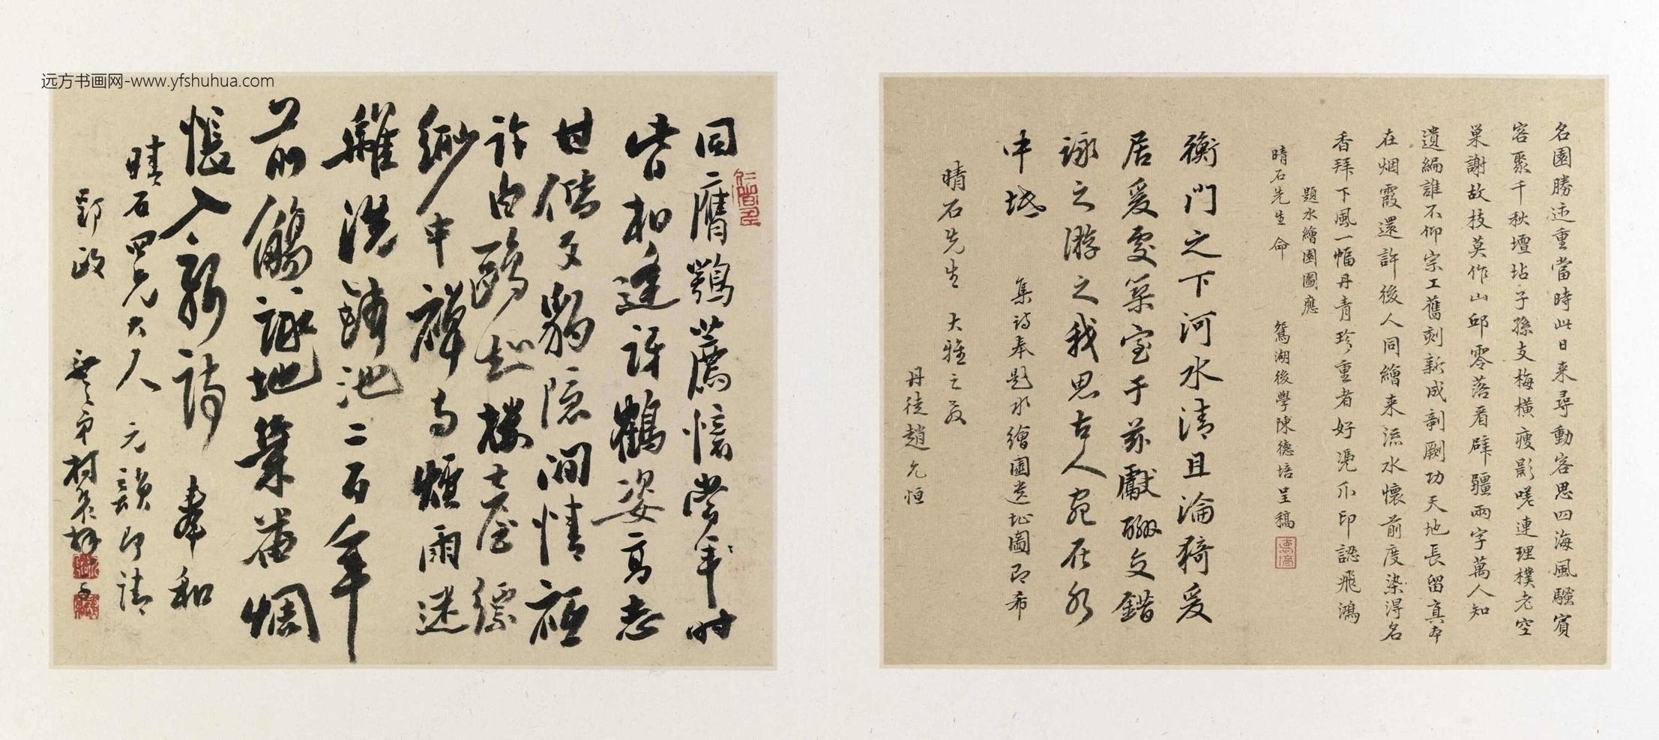 远方书画网-www.yfshuhua.com
名園勝迹重當時此日来尋動容思四海風騷賓
容聚千秋壇坫子孫支梅橫瘦影嗟連理樸老空
巢謝故枝莫作山邱零落看辟疆兩字萬人知
遺編誰不仰宗工舊刻新成剞劂功天地長留真本
在烟霞還許後人同繪来流水懷前度染得名
香拜下風一幅丹青珍重者好凴爪印認飛鴻
題水繪園圖應
晴石先生命
鴛湖後學陳德培呈稿
衡門之下河水清且淪猗爰
居爰處築室于茲獻酬交錯
詠之游之我思古人宛在水
中坻
集詩奉題水繪園遺址圖即希
晴石先生大雅之教
丹徒趙允恒
同膺鶚薦憶當年
皆相逢訝鶴姿高志
甘偕文豹隱閒情
許白鷗
緲中禪烟雨迷
離洗鉢池二百年
前觴詠地葉黃惆
悵入新詩
奉和
晴石四兄大人元韻即請
郢政